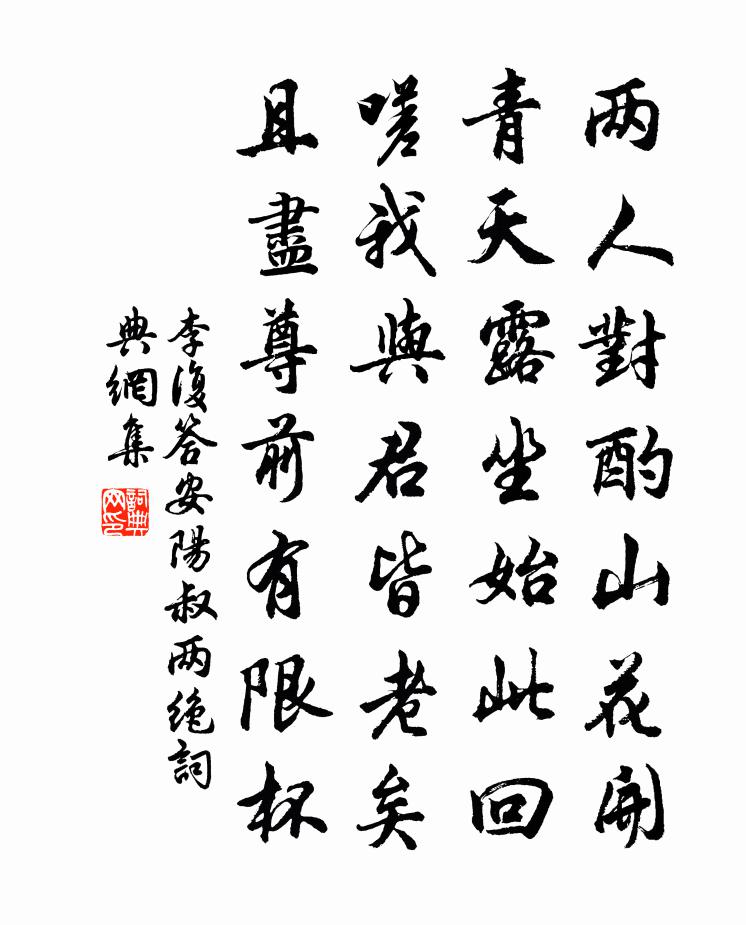 两人對酌山花開
青天露坐始此回
嗟我與君皆老矣
且盡尊前有限杯
李復答安陽叔两绝詞
典網集
詞典網印